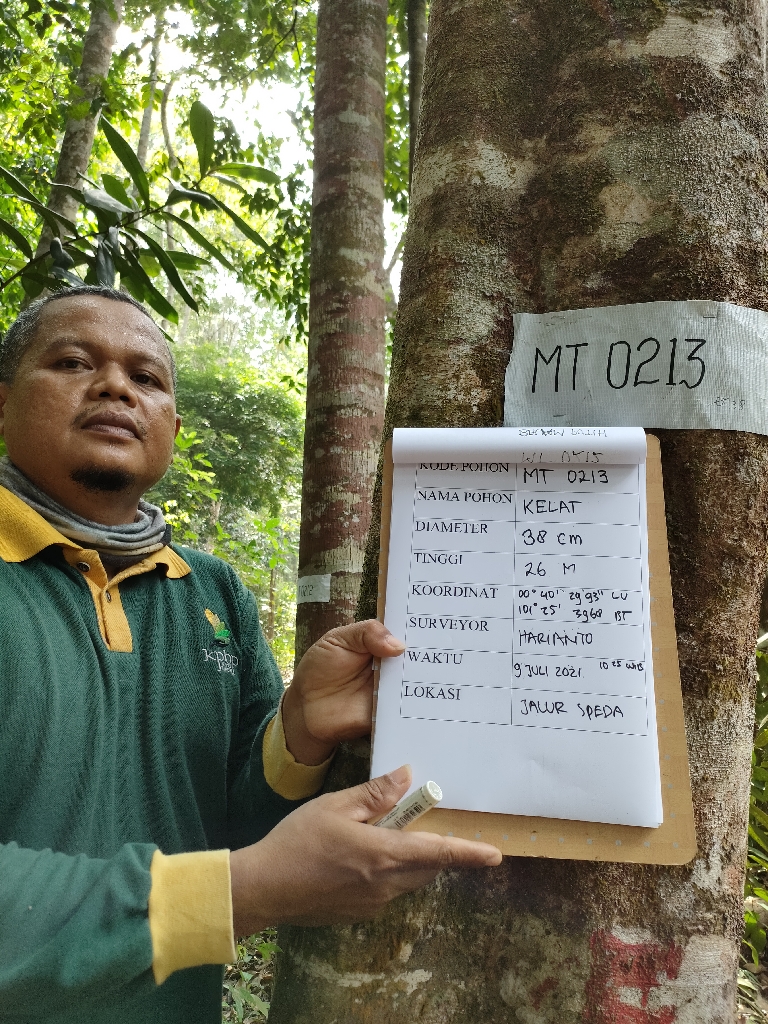 MT 0213
KODE POHON MT 0213
NAMA POHON KELAT
DIAMETER 38 cm
TINGGI 26 M
KOORDINAT 00° 40' 29 93" LU
101° 25' 3968 BT
SURVEYOR HARIANTO
WAKTU 9 JULI 2021 10 25 WIB
LOKASI JALUR SPEDA